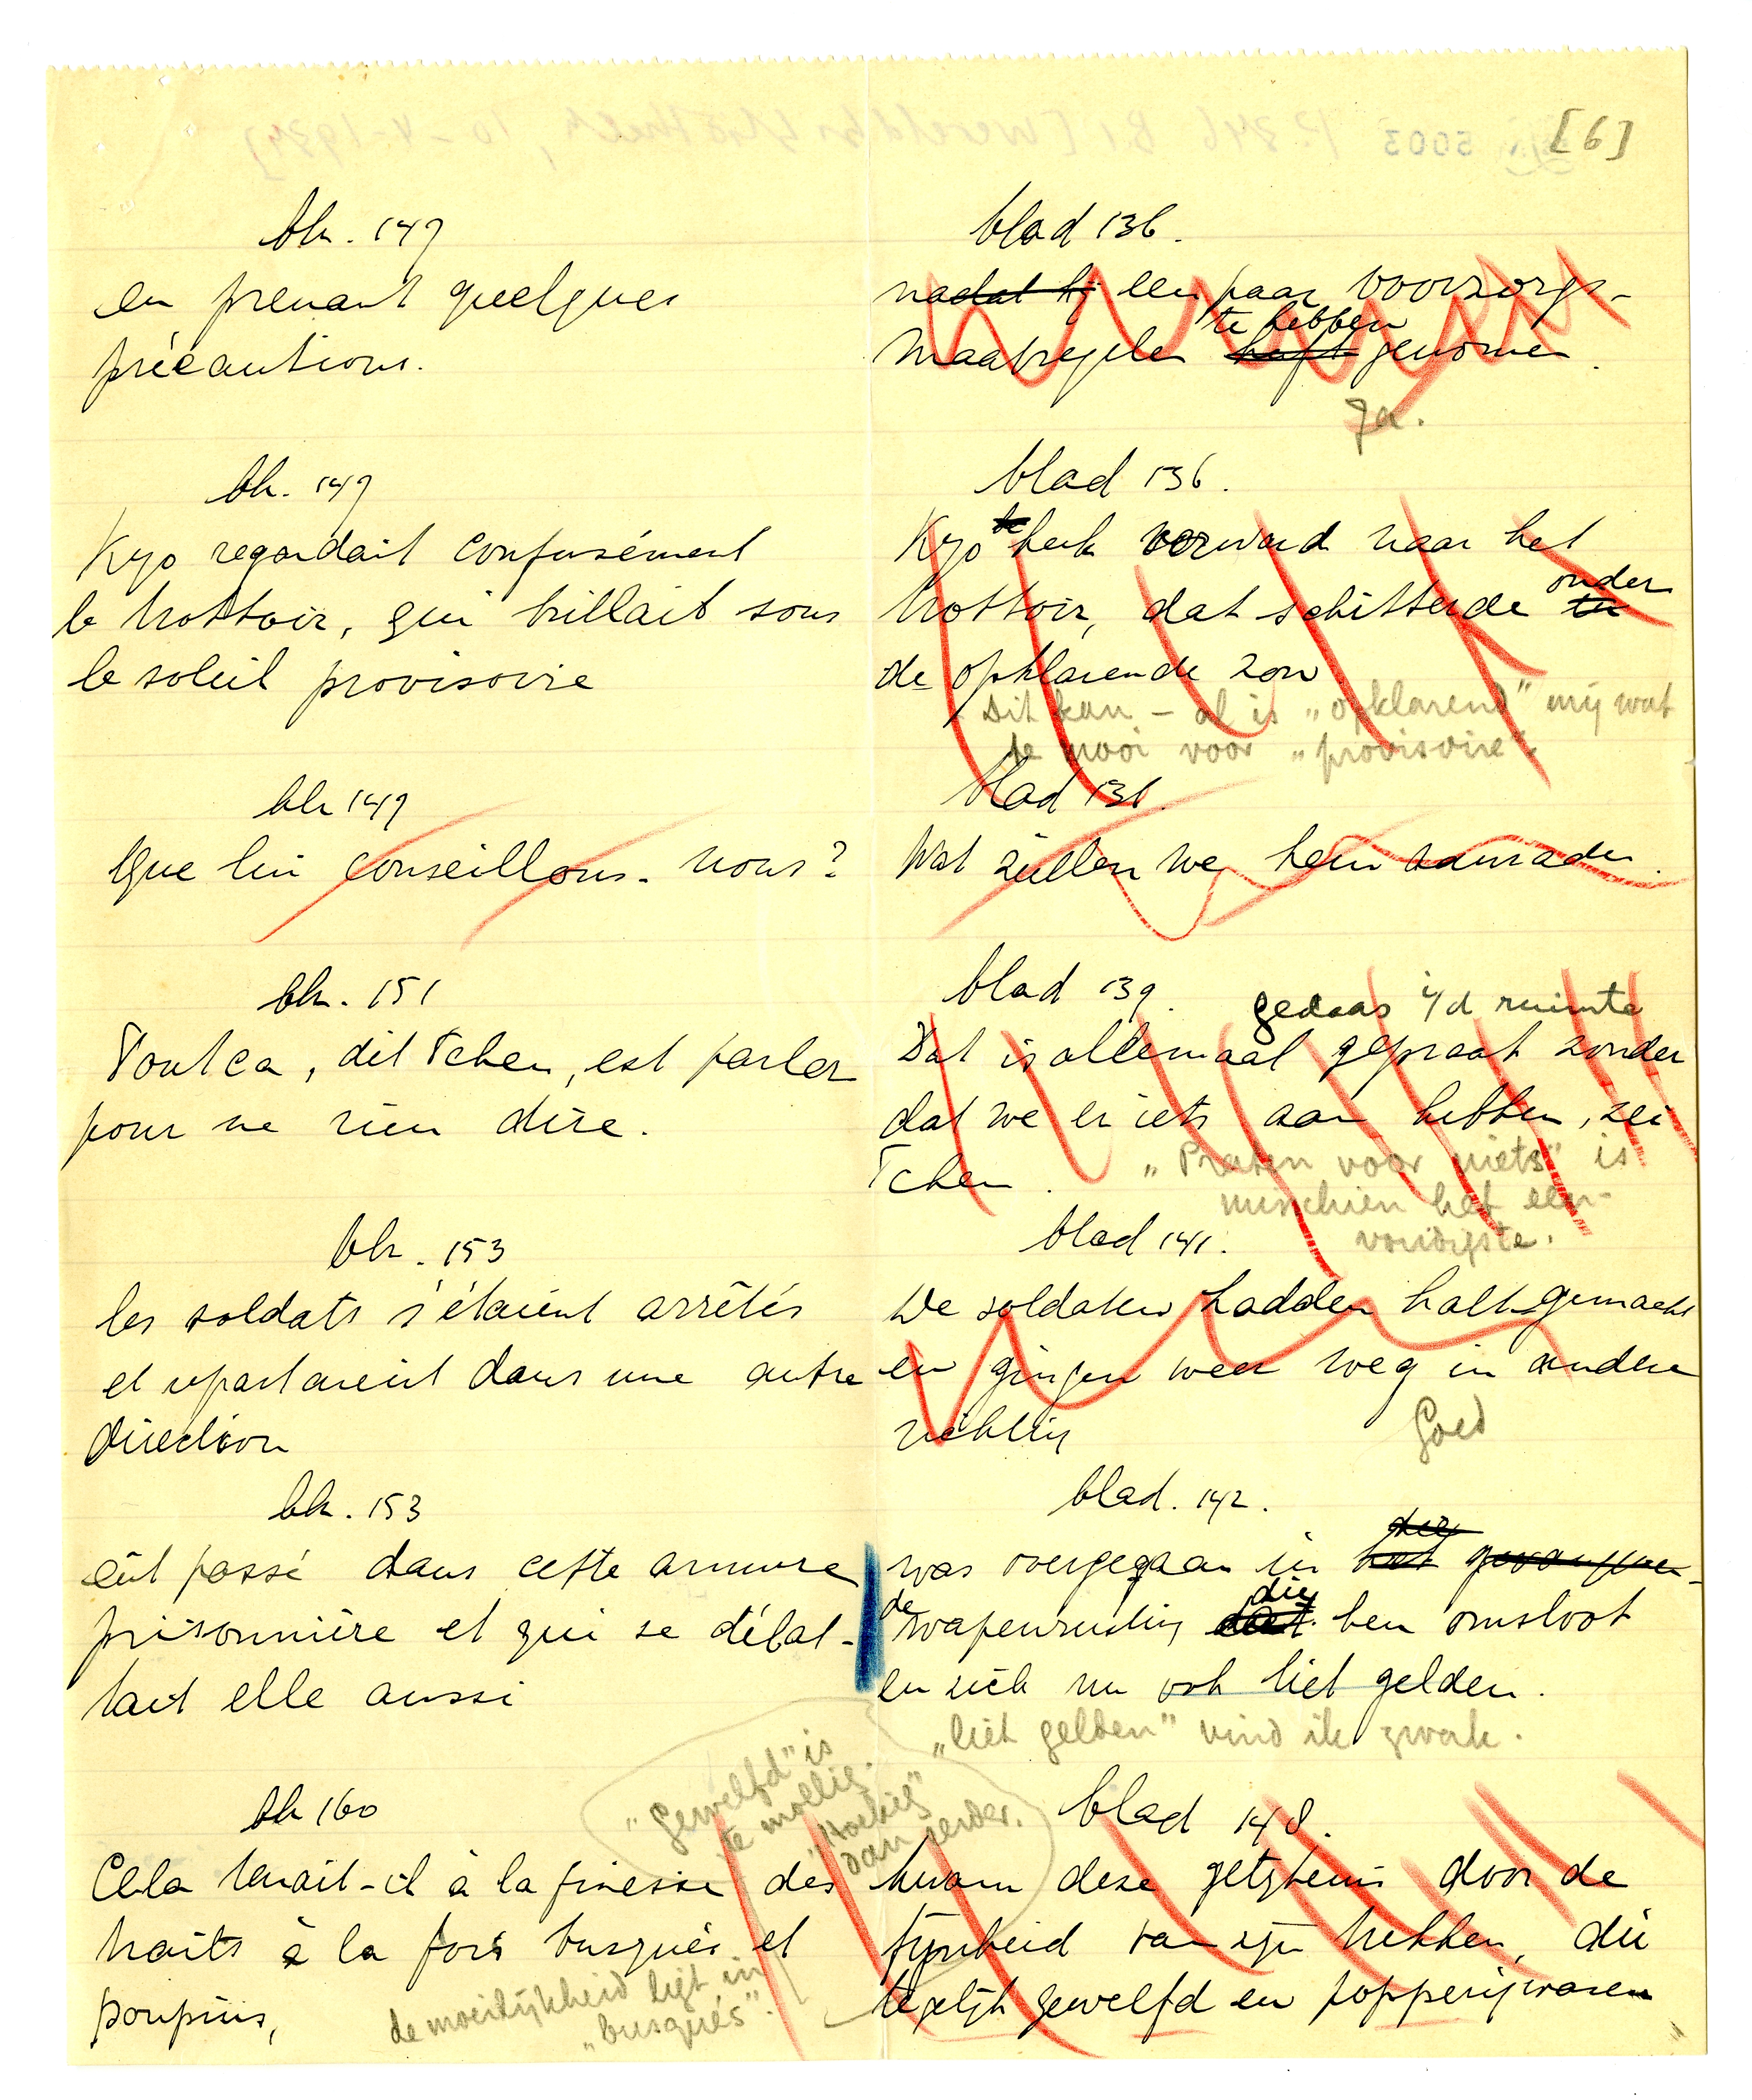 [6]
blz. 149
en prenant quelques
précautions.
blad 136.
nadat hij een paar voorzorgs-
te hebben
maatregelen heeft genomen.
Ja.
blz. 149
Kyo regardait confusément
le trottoir, qui brillait sous
le soleil provisoire
blad 136.
Kyo keek verward naar het
onder
trottoir, dat schitterde in
de opklarende zon
Dit kan – al is „opklarend" mij wat
te mooi voor „provisoire".
blz 149
Que lui conseillons-nous?
blad 136.
Wat zullen we hem aanraden.
blz. 151
Tout ca, dit Tchen, est parler
pour ne rien dire.
blad 139.
gedaas i/d ruimte
Dat is allemaal gepraat zonder
dat we er iets aan hebben, zei
Tchen.
„Praten voor niets" is
misschien het een-
voudigste.
blz. 153
les soldats s'étaient arrêtés
et repartaient dans une autre
direction
blad 141.
De soldaten hadden halt gemaakt
en gingen weer weg in andere
richting
Goed
blz. 153
eût passé dans cette armure
prisonnière et qui se débat-
tait elle aussi
blad. 142.
die
was overgegaan in het gevangen-
de die
wapenrusting dat hen omsloot
en zich nu ook liet gelden.
„liet gelden" vind ik zwak.
blz 160
Cela tenait-il à la finesse des
traits à la fois busqués et
poupins,
de moeilijkheid ligt in
„busqués".
„Gewelfd" is
te mollig.
„Hoekig"
dan eerder.
blad 148.
kwam deze getijheid door de
fijnheid van zijn trekken, die
tegelijk gewelfd en popperig waren